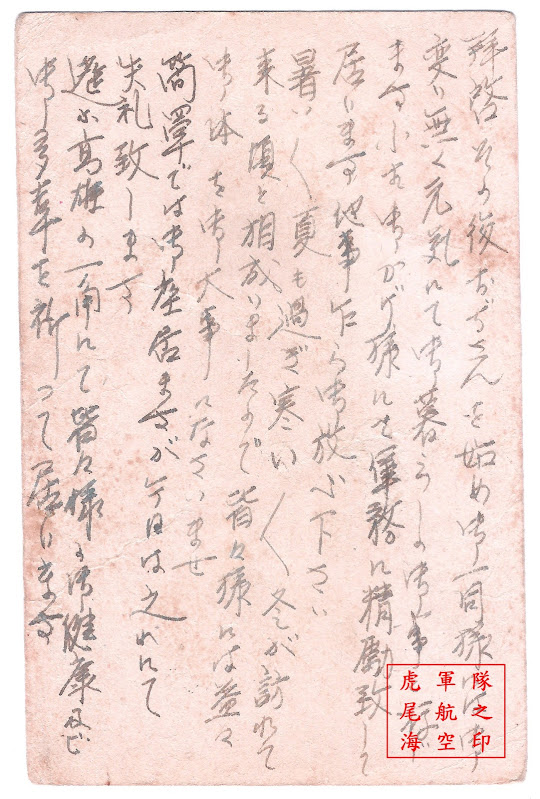 拝啓その後おぢさんを始め御一同様には御
変り無く元気にて御暮らしの御事と存じ
ます小生御かげ様にて軍務に精励致して
居ります他事乍ら御放心下さい
暑い〱夏も過ぎ寒い〱冬が訪れて
来る頃と相成りましたので皆々様には益々
御体を御大事になさいませ
簡単では御座居ますが今日は之れにて
失礼致します
遥か高雄の一角にて皆々様の御健康及び
御多幸を祈って居ります
虎尾海
軍航空
隊之印